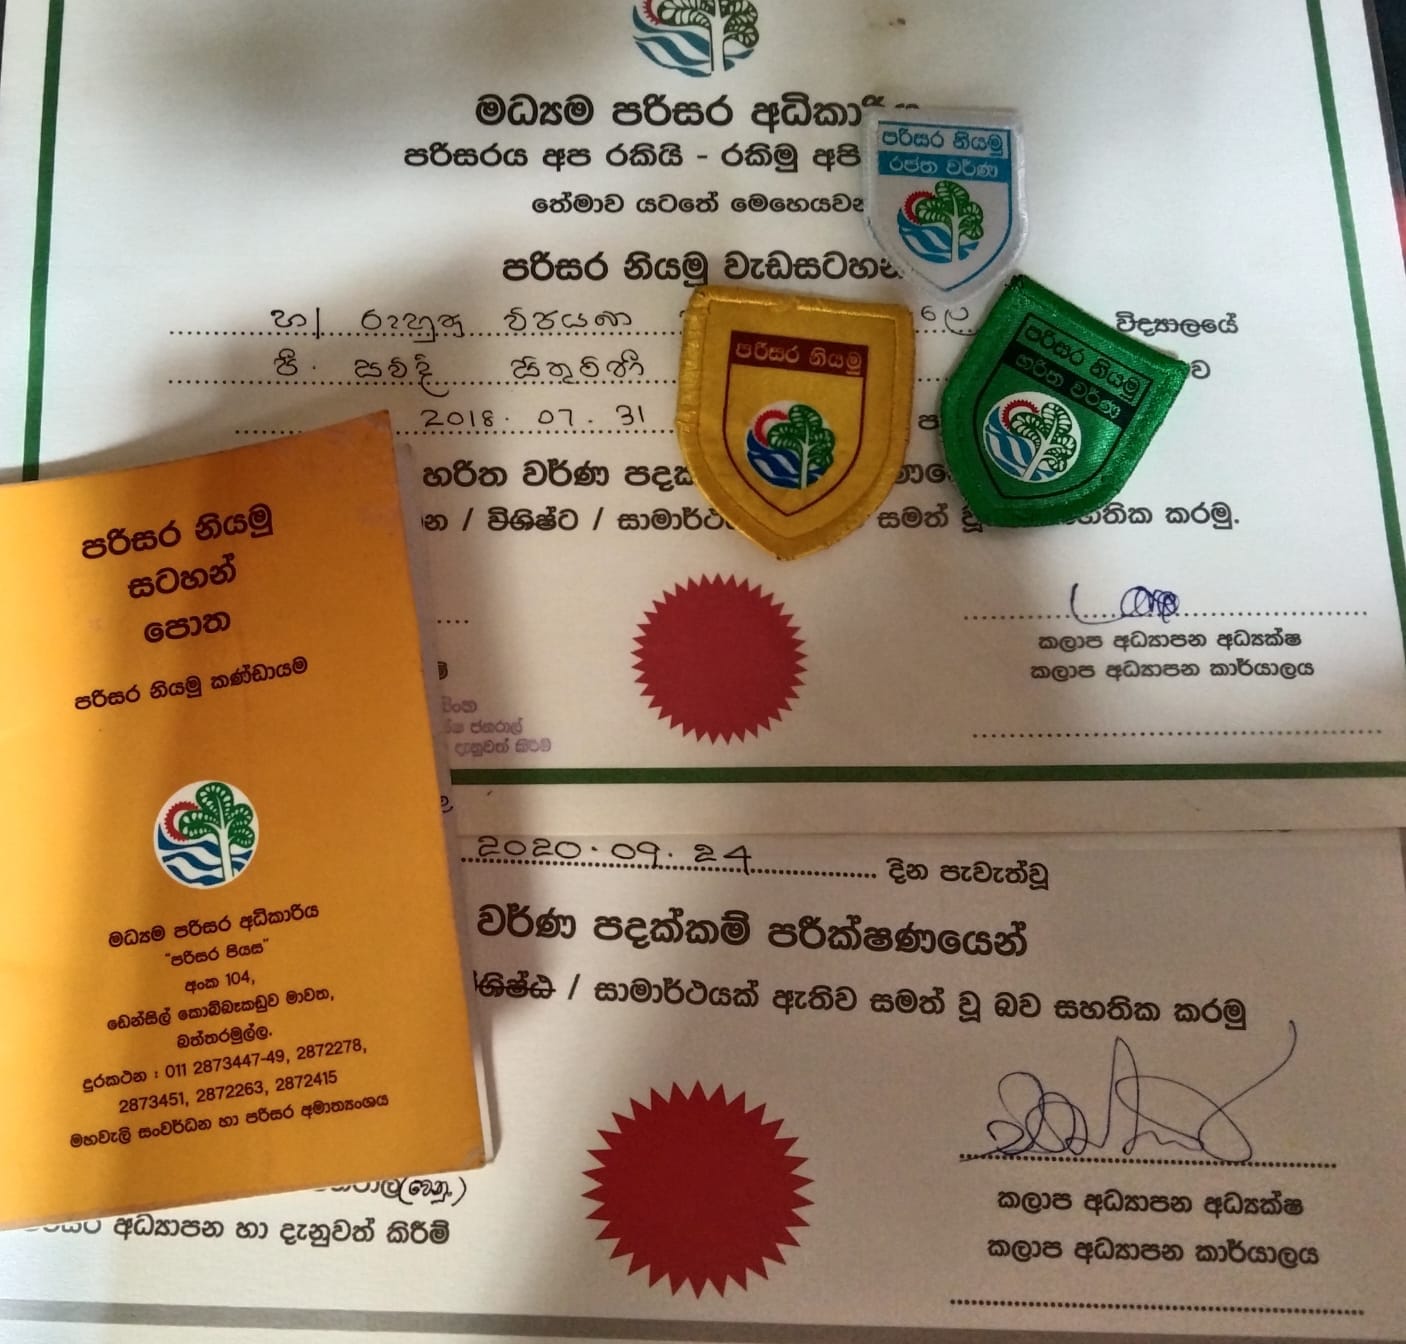 මධ්‍යම පරිසර
පරිසරය අප රකියි - රකිමු අපි
තේමාව යටතේ
පරිසර නියමු වැඩසටහන
හා/ රුහුණු විජයබා විද්‍යාලයේ
පී.
2018.07.31
හරිත වර්ණ
/ විශිෂ්ට /
සමත් වූ
සහතික කරමු.
කලාප අධ්‍යාපන අධ්‍යක්ෂ
කලාප අධ්‍යාපන කාර්යාලය
ජනරාල්
දැනුවත් කිරීම්
පරිසර නියමු
රජත වර්ණ
පරිසර නියමු
පරිසර නියමු
හරිත වර්ණ
පරිසර නියමු
සටහන්
පොත
පරිසර නියමු කණ්ඩායම
මධ්‍යම පරිසර අධිකාරිය
"පරිසර පියස"
අංක 104,
ඩෙන්සිල් කොබ්බෑකඩුව මාවත,
බත්තරමුල්ල.
දුරකථන : 011 2873447-49, 2872278,
2873451, 2872263, 2872415
මහවැලි සංවර්ධන හා පරිසර අමාත්‍යංශය
2020.09.24 දින පැවැත්වූ
වර්ණ පදක්කම් පරීක්ෂණයෙන්
/ සාමාර්ථයක් ඇතිව සමත් වූ බව සහතික කරමු
අධ්‍යාපන හා දැනුවත් කිරීම්
කලාප අධ්‍යාපන අධ්‍යක්ෂ
කලාප අධ්‍යාපන කාර්යාලය